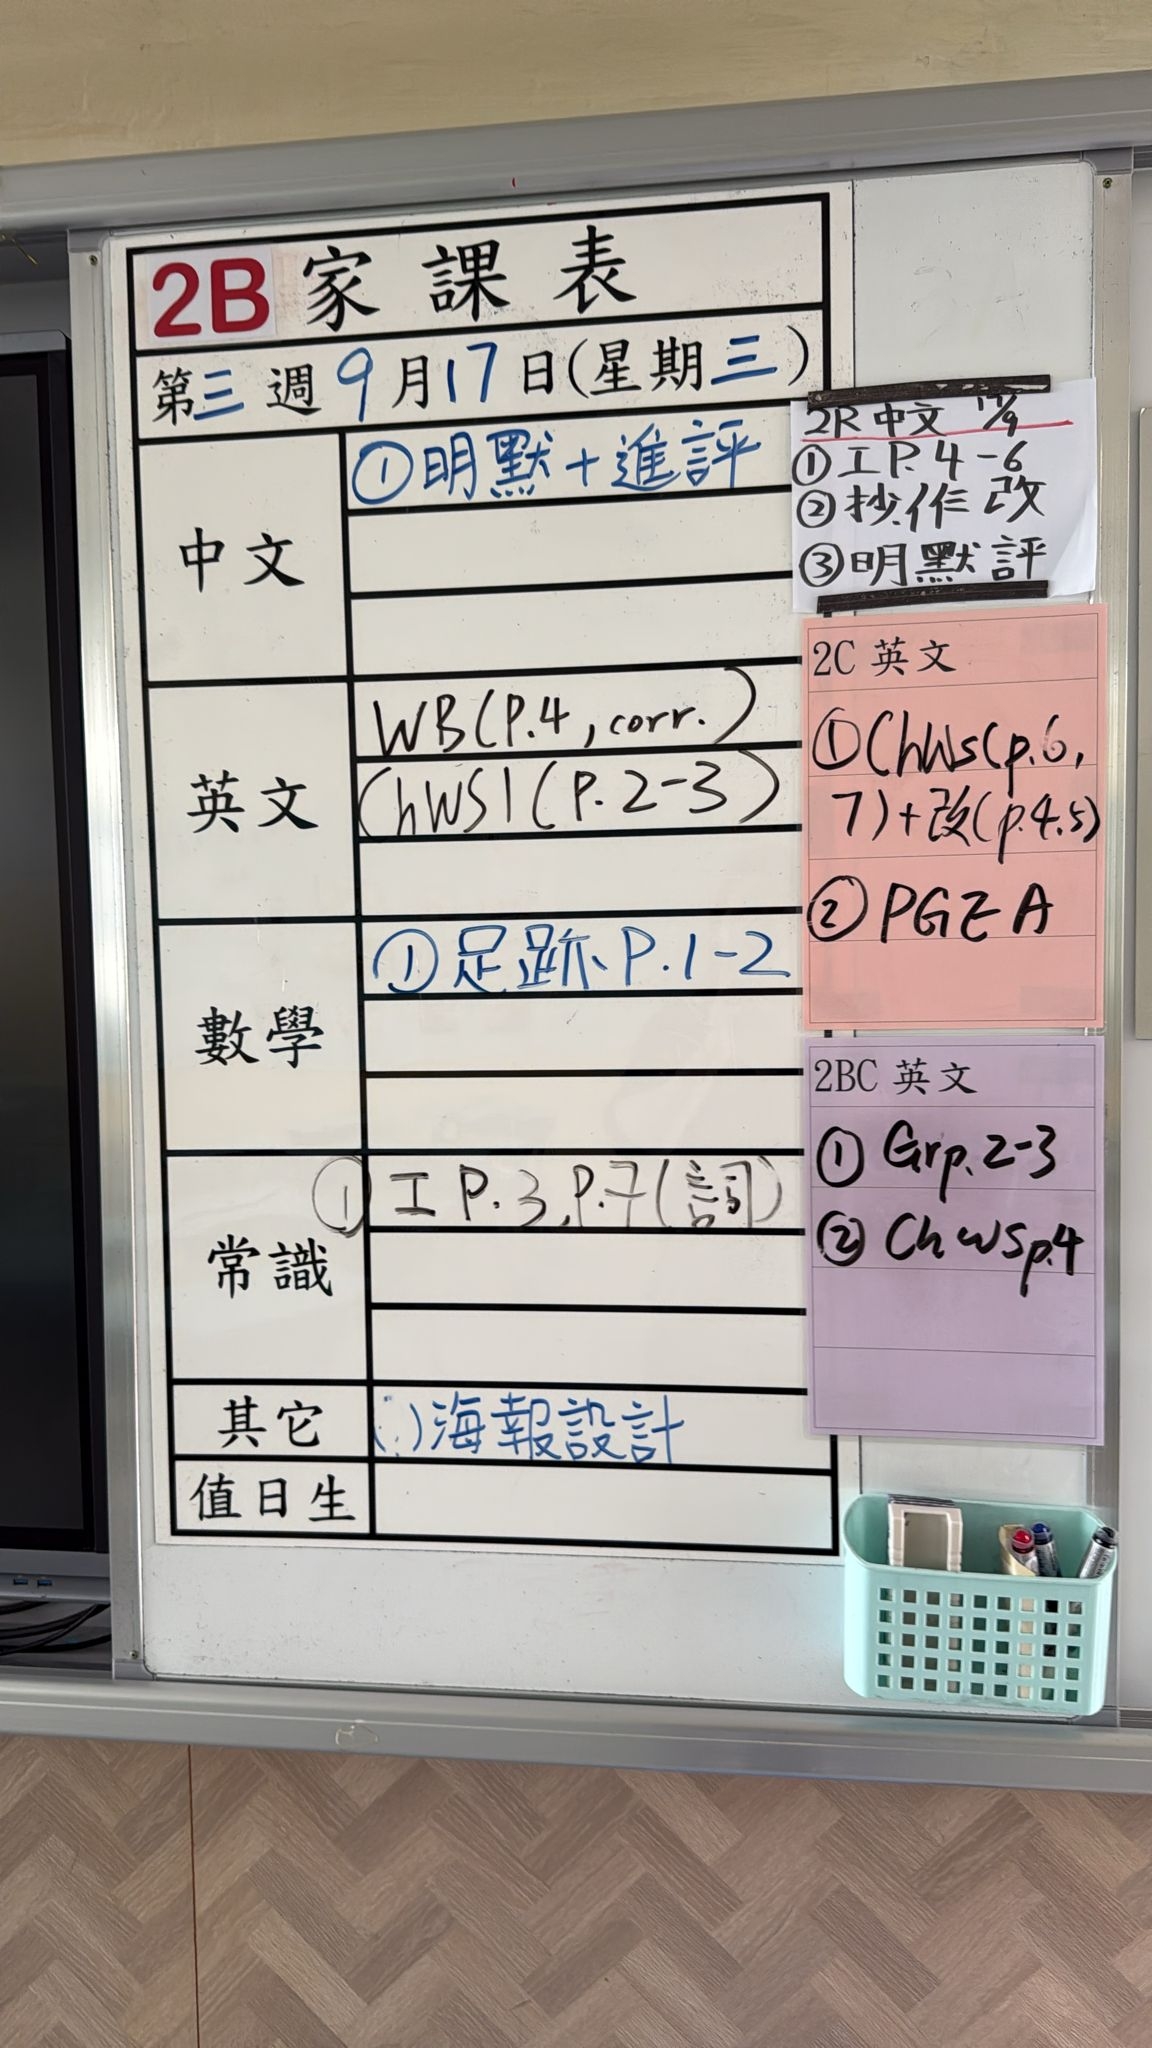 2B 家課表
第三週9月17日(星期三)
中文
①明默+進評
英文
WB(P.4, corr.)
ChWS1(P.2-3)
數學
①足跡P.1-2
常識
①工P.3,P.7(詞)
其它
(1)海報設計
值日生
2R 中文 17/9
①工P.4-6
②抄作改
③明默評
2C 英文
①ChWs(p.6,
7)+改(p.4,5)
②PGE A
2BC 英文
①Grp.2-3
②ChWSp.4